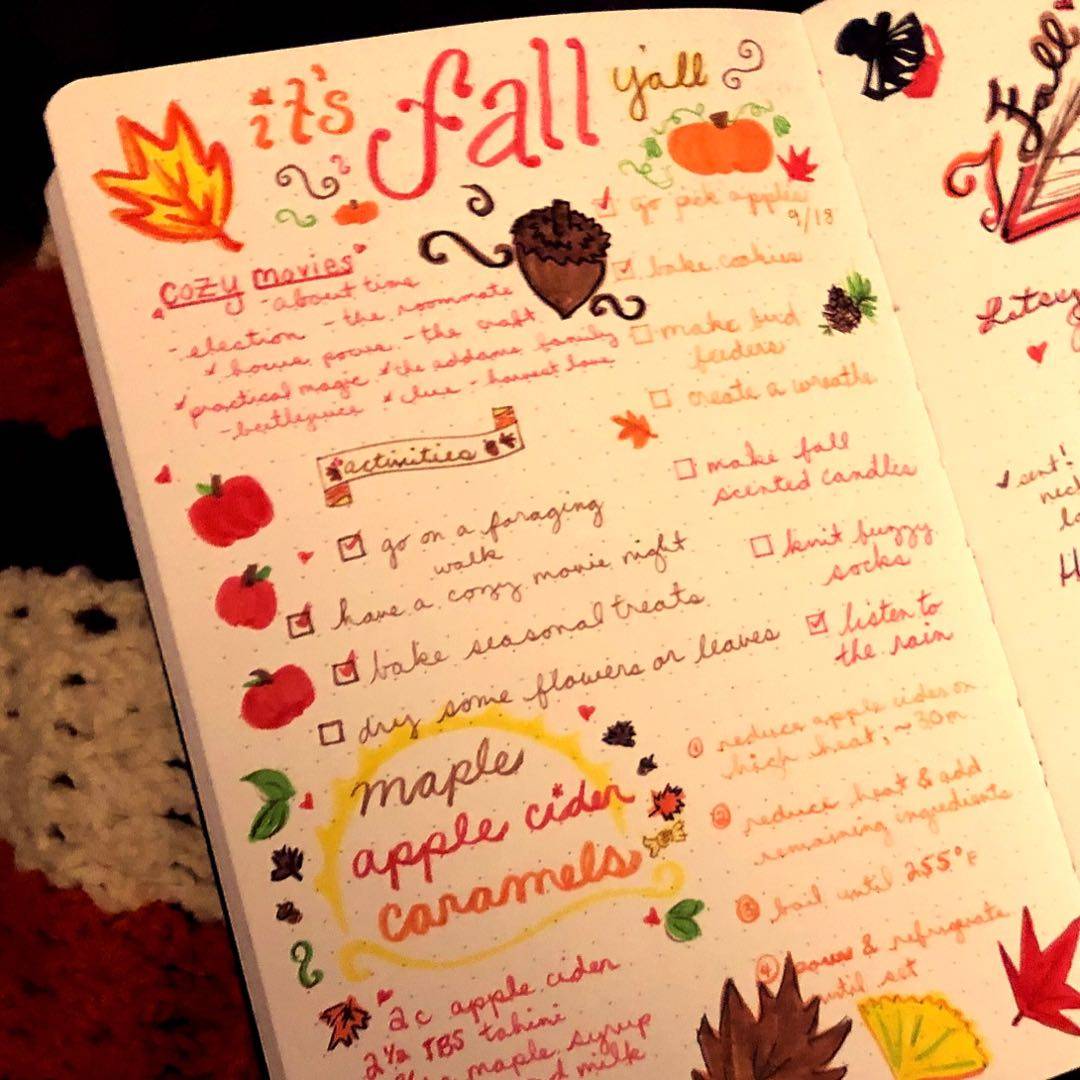 it's fall y'all
cozy movies
- about time
- election - the roommate
✓ hocus pocus - the craft
✓ practical magic ✓ the addams family
- beetlejuice ✓ clue - harvest love
activities
☑ go on a foraging
walk
☑ have a cozy movie night
☑ bake seasonal treats
☐ dry some flowers or leaves
☑ go pick apples
9/18
☑ bake cookies
☐ make bird
feeders
☐ create a wreathe
☐ make fall
scented candles
☐ knit fuzzy
socks
☑ listen to
the rain
maple
apple cider
caramels
2c apple cider
2 1/2 TBS tahini
maple syrup
milk
① reduce apple cider on
high heat; ~30m
② reduce heat & add
remaining ingredients
③ boil until 255°F
④ pour & refrigerate
until set
Fall
✓ sent!